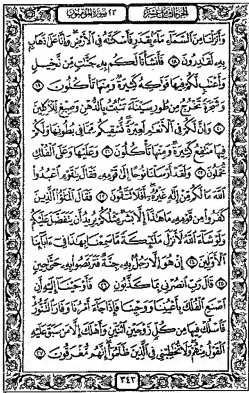 الجزء الثامن عشر ٢٣ سورة المؤمنون
وَأَنزَلْنَا مِنَ ٱلسَّمَآءِ مَآءًۢ بِقَدَرٍ فَأَسْكَنَّـٰهُ فِى ٱلْأَرْضِ وَإِنَّا عَلَىٰ ذَهَابٍۭ
بِهِۦ لَقَـٰدِرُونَ ١٨ فَأَنشَأْنَا لَكُم بِهِۦ جَنَّـٰتٍ مِّن نَّخِيلٍ
وَأَعْنَـٰبٍ لَّكُمْ فِيهَا فَوَٰكِهُ كَثِيرَةٌ وَمِنْهَا تَأْكُلُونَ ١٩
وَشَجَرَةً تَخْرُجُ مِن طُورِ سَيْنَآءَ تَنۢبُتُ بِٱلدُّهْنِ وَصِبْغٍ لِّلْـَٔاكِلِينَ
٢٠ وَإِنَّ لَكُمْ فِى ٱلْأَنْعَـٰمِ لَعِبْرَةً نُّسْقِيكُم مِّمَّا فِى بُطُونِهَا وَلَكُمْ
فِيهَا مَنَـٰفِعُ كَثِيرَةٌ وَمِنْهَا تَأْكُلُونَ ٢١ وَعَلَيْهَا وَعَلَى ٱلْفُلْكِ
تُحْمَلُونَ ٢٢ وَلَقَدْ أَرْسَلْنَا نُوحًا إِلَىٰ قَوْمِهِۦ فَقَالَ يَـٰقَوْمِ ٱعْبُدُوا۟
ٱللَّهَ مَا لَكُم مِّنْ إِلَـٰهٍ غَيْرُهُۥٓ أَفَلَا تَتَّقُونَ ٢٣ فَقَالَ ٱلْمَلَؤُا۟ ٱلَّذِينَ
كَفَرُوا۟ مِن قَوْمِهِۦ مَا هَـٰذَآ إِلَّا بَشَرٌ مِّثْلُكُمْ يُرِيدُ أَن يَتَفَضَّلَ عَلَيْكُمْ
وَلَوْ شَآءَ ٱللَّهُ لَأَنزَلَ مَلَـٰٓئِكَةً مَّا سَمِعْنَا بِهَـٰذَا فِىٓ ءَابَآئِنَا
ٱلْأَوَّلِينَ ٢٤ إِنْ هُوَ إِلَّا رَجُلٌۢ بِهِۦ جِنَّةٌ فَتَرَبَّصُوا۟ بِهِۦ حَتَّىٰ حِينٍ
٢٥ قَالَ رَبِّ ٱنصُرْنِى بِمَا كَذَّبُونِ ٢٦ فَأَوْحَيْنَآ إِلَيْهِ أَنِ
ٱصْنَعِ ٱلْفُلْكَ بِأَعْيُنِنَا وَوَحْيِنَا فَإِذَا جَآءَ أَمْرُنَا وَفَارَ ٱلتَّنُّورُ
فَٱسْلُكْ فِيهَا مِن كُلٍّ زَوْجَيْنِ ٱثْنَيْنِ وَأَهْلَكَ إِلَّا مَن سَبَقَ عَلَيْهِ
ٱلْقَوْلُ مِنْهُمْ وَلَا تُخَـٰطِبْنِى فِى ٱلَّذِينَ ظَلَمُوٓا۟ إِنَّهُم مُّغْرَقُونَ ٢٧
٣٤٣